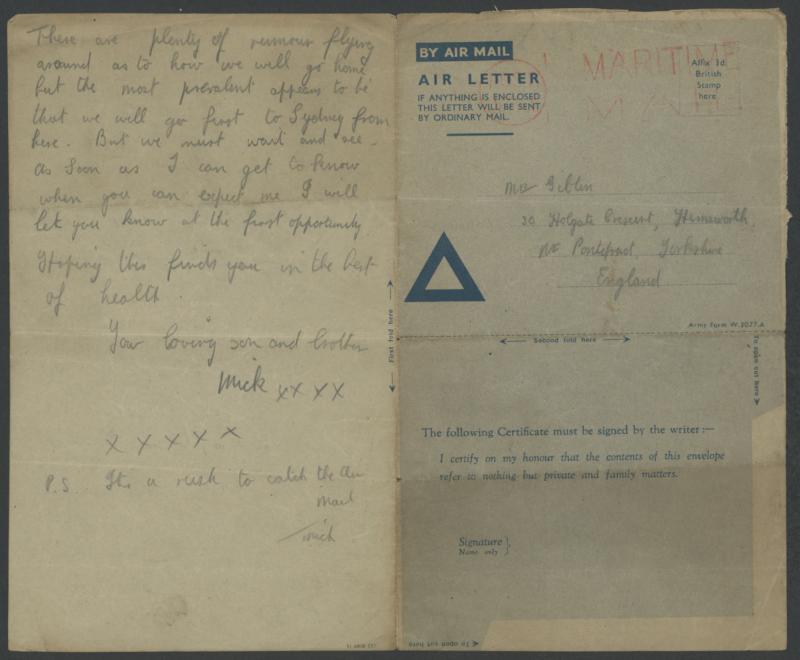 There are plenty of rumour flying
around as to how we will go home
but the most prevalent appears to be
that we will go first to Sydney from
here. But we must wait and see.
As soon as I can get to know
when you can expect me I will
let you know at the first opportunity
Hoping this finds you in the best
of health.
Your loving son and brother
Mick xx x x
x x x x x
P.S. Its a rush to catch the air
mail
Mick
BY AIR MAIL
AIR LETTER
IF ANYTHING IS ENCLOSED
THIS LETTER WILL BE SENT
BY ORDINARY MAIL.
MARITIME
MAIL
Affix 3d.
British
Stamp
here
Mrs Giblin
20 Holgate Crescent, Hemsworth,
Nr Pontefract, Yorkshire
England
Army Form W.3077.A
First fold here
Second fold here
To open cut here
The following Certificate must be signed by the writer:—
I certify on my honour that the contents of this envelope
refer to nothing but private and family matters.
Signature
Name only
To open cut here